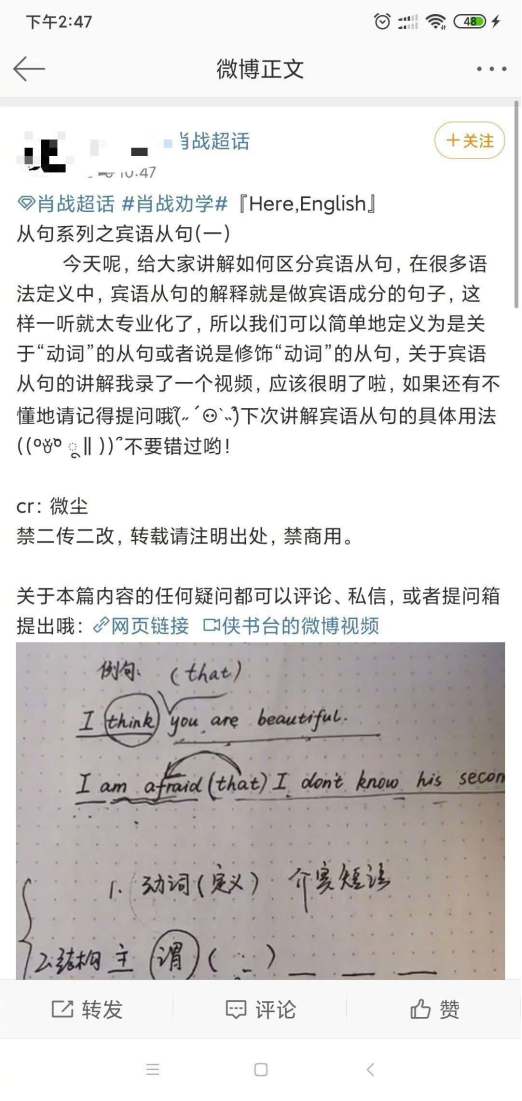 下午2:47
48
微博正文
肖战超话
+关注
10:47
肖战超话 #肖战劝学#『Here,English』
从句系列之宾语从句(一)
今天呢，给大家讲解如何区分宾语从句，在很多语
法定义中，宾语从句的解释就是做宾语成分的句子，这
样一听就太专业化了，所以我们可以简单地定义为是关
于“动词”的从句或者说是修饰“动词”的从句，关于宾语
从句的讲解我录了一个视频，应该很明了啦，如果还有不
懂地请记得提问哦 下次讲解宾语从句的具体用法
不要错过哟！
cr：微尘
禁二传二改，转载请注明出处，禁商用。
关于本篇内容的任何疑问都可以评论、私信，或者提问箱
提出哦：网页链接 侠书台的微博视频
例句: (that)
I think you are beautiful.
I am afraid (that) I don't know his secon
1. 动词(定义) 介宾短语
2.结构 主 谓 ( )
转发
评论
赞